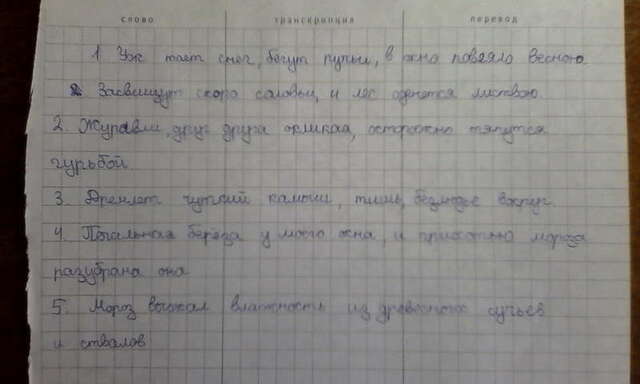 слово транскрипция перевод
1 Уж тает снег, бегут ручьи, в окно повеяло весною.
Засвищут скоро соловьи, и лес оденется листвою.
2. Журавли, друг друга окликая, осторожно тянутся
гурьбой.
3. Дремлет чуткий камыш, тишь, безлюдье вокруг.
4. Печальная береза у моего окна, и прихотью мороза
разубрана она
5. Мороз выжал влажность из древесных сучьев
и стволов